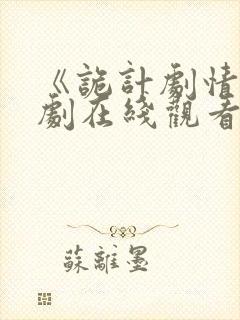 《詭計劇情
劇在綫觀看
蘇離墨